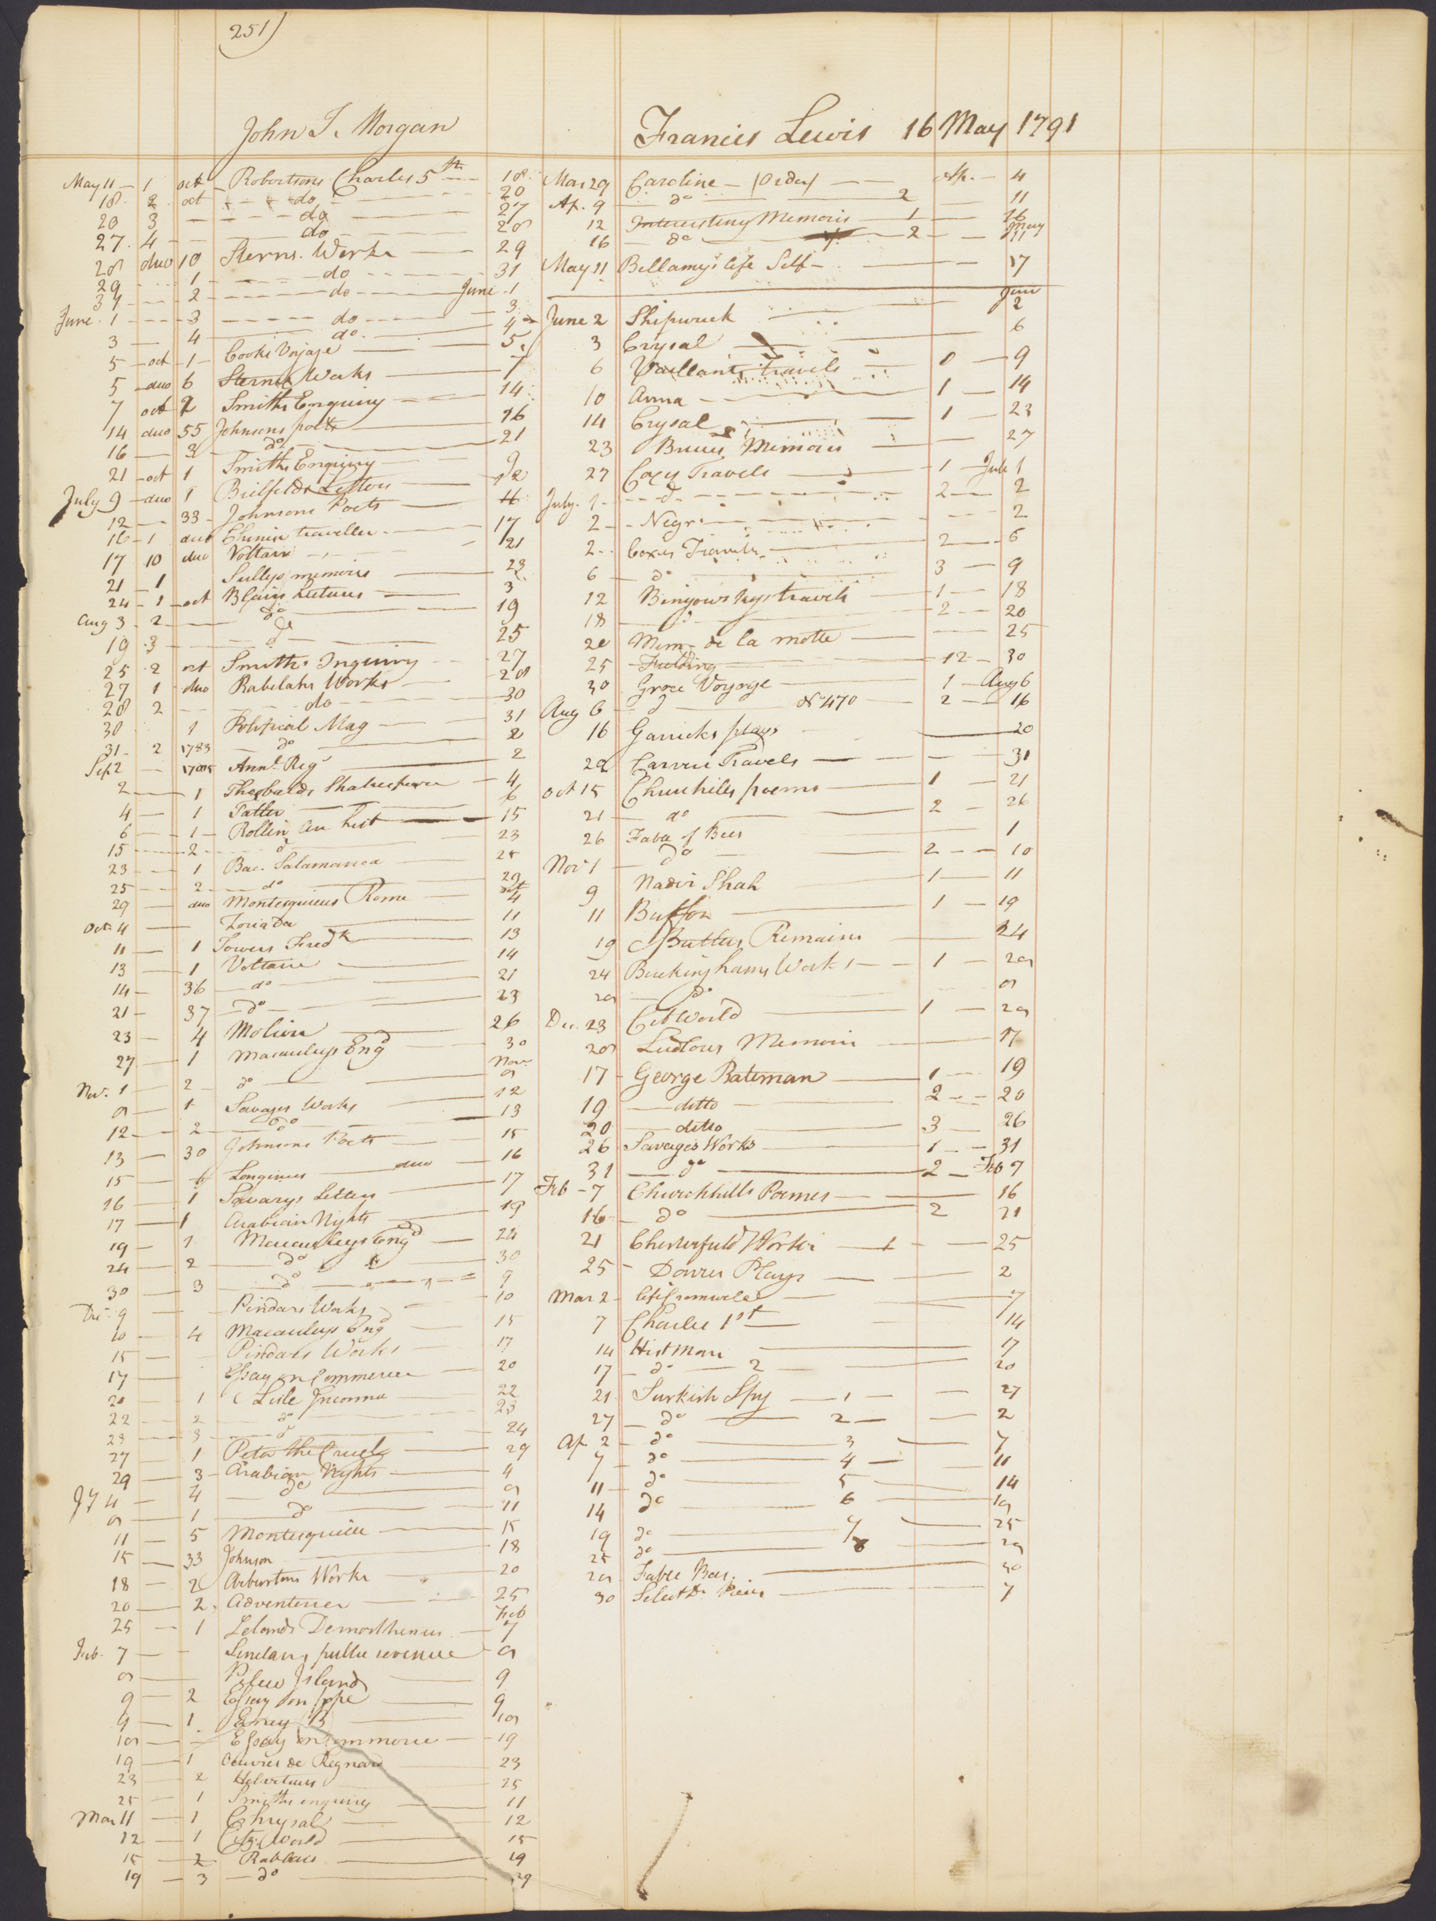 251
John T. Morgan
May 11 - 1 oct Robertsons Charles 5th 18
18 - 2 oct do 20
20 3 do 27
27. 4 do 28
28 duo 10 Sterns. Works 29
29 1 do 31
31 2 do June 1
June 1 3 do 3
3 4 do 4
5 oct 1 Cooks Voyage 5
5 duo 6 Sterns Works 7
7 oct 2 Smiths Enquiry 14
14 duo 55 Johnsons poets 16
16 3 do 21
21 oct 1 Smiths Enquiry 9
July 9 duo 1 Bielfelds Letters 12
12 33 Johnsons Poets
16 1 duo traveller 17
17 10 duo Voltair 21
21 1 Sullys memoirs 23
24 1 oct Blairs Lectures 3
Aug 3 2 do 19
19 3 do 25
25 2 oct Smiths Inquiry 27
27 1 duo Rabelahs Works 28
28 2 do 30
30 1 Political Mag 31
31 2 1783 do 2
Sep 2 Annl. Regr 2
2 1 Theobalds Shakespeare 4
4 1 Tatler 6
6 1 Rollin an hist 15
15 2 do 23
23 1 Bac. Salamanca 25
25 2 do 29
29 duo Montesquieus Rome 4
Oct 4 11
11 1 Towers Fredk 13
13 1 Voltaire 14
14 36 do 21
21 37 do 23
23 4 Moliere 26
27 1 Macauleys Engd 30
Nov. 1 2 do Nov 8
8 1 Savages Works 12
12 2 do 13
13 30 Johnsons Poets 15
15 Longinus duo 16
16 1 Savarys Letters 17
17 1 Arabian Nights 19
19 1 Macauleys Engd 24
24 2 do 30
30 3 do 9
Dec 9 Pindars Works 10
10 4 Macauleys Engd 15
15 Pindars Works 17
17 Essay on Commerce 20
20 1 22
22 2 do 23
23 3 do 24
27 1 Peter the Cruel 29
29 3 Arabian Nights 4
Jy 4 4 do 8
8 1 do 11
11 5 Montesquieu 15
15 33 Johnson 18
18 2 Works 20
20 2 Adventurer 25
25 1 Lelands Demosthenes Feb 7
Feb. 7 Sinclairs public revenue 8
8 Pelew Islands 9
9 2 Essay on pope 9
9 1 18
18 Essay on Commerce 19
19 1 Oeuvres de Regnard 23
23 2 Helvetius 25
25 1 Smiths enquiry 11
Mar 11 1 Chrysal 12
12 1 Citz. World 15
15 2 Rablais 19
19 3 do 29
Francis Lewis 16 May 1791
Mar 29 Caroline (Order) Ap. 4
Ap. 9 do 2 11
12 Interesting Memoirs 1 16
16 do 2 May 11
May 11 Bellamy's life Self 17
June 2 Shipwreck June 2
3 Crysal 6
6 Vaillants Travels 1 9
10 Anna 1 14
14 Crysal 1 23
23 Bruces Memoirs 27
27 Coxes Travels 1 July 1
July. 1 do 2 2
2 Negr 2
2 Coxes Travels 2 6
6 do 3 9
12 Benyowskys travels 1 18
18 do 2 20
20 Mem. de la motte 25
25 Fielding 12 30
30 Grose Voyage 1 Aug 6
Aug 6 do No 470 2 16
16 Garricks plays 20
22 Carvers Travels 31
Oct 15 Churchils poems 1 21
21 do 2 26
26 Fable of Bees 1
Nov 1 do 2 10
9 Nadir Shah 1 11
11 Buffon 1 19
19 Butlers Remains 24
24 Buckinghams Works 1 28
28 do 8
Dec. 23 Cit World 1 28
28 Ludlows Memoirs 17
17 George Bateman 1 19
19 ditto 2 20
20 ditto 3 26
26 Savages Works 1 31
31 do 2 Feb 7
Feb 7 Churchhills Poemes 16
16 do 2 21
21 Chesterfield Works 1 25
25 Plays 2
Mar 2 life Cromwele 7
7 Charles 1st 14
14 Hist Man 17
17 do 2 20
21 Turkish Spy 1 27
27 do 2 2
Ap 2 do 3 7
7 do 4 11
11 do 5 14
14 do 6 19
19 do 7 25
25 do 8 28
28 Fable Bees. 30
30 Select 7